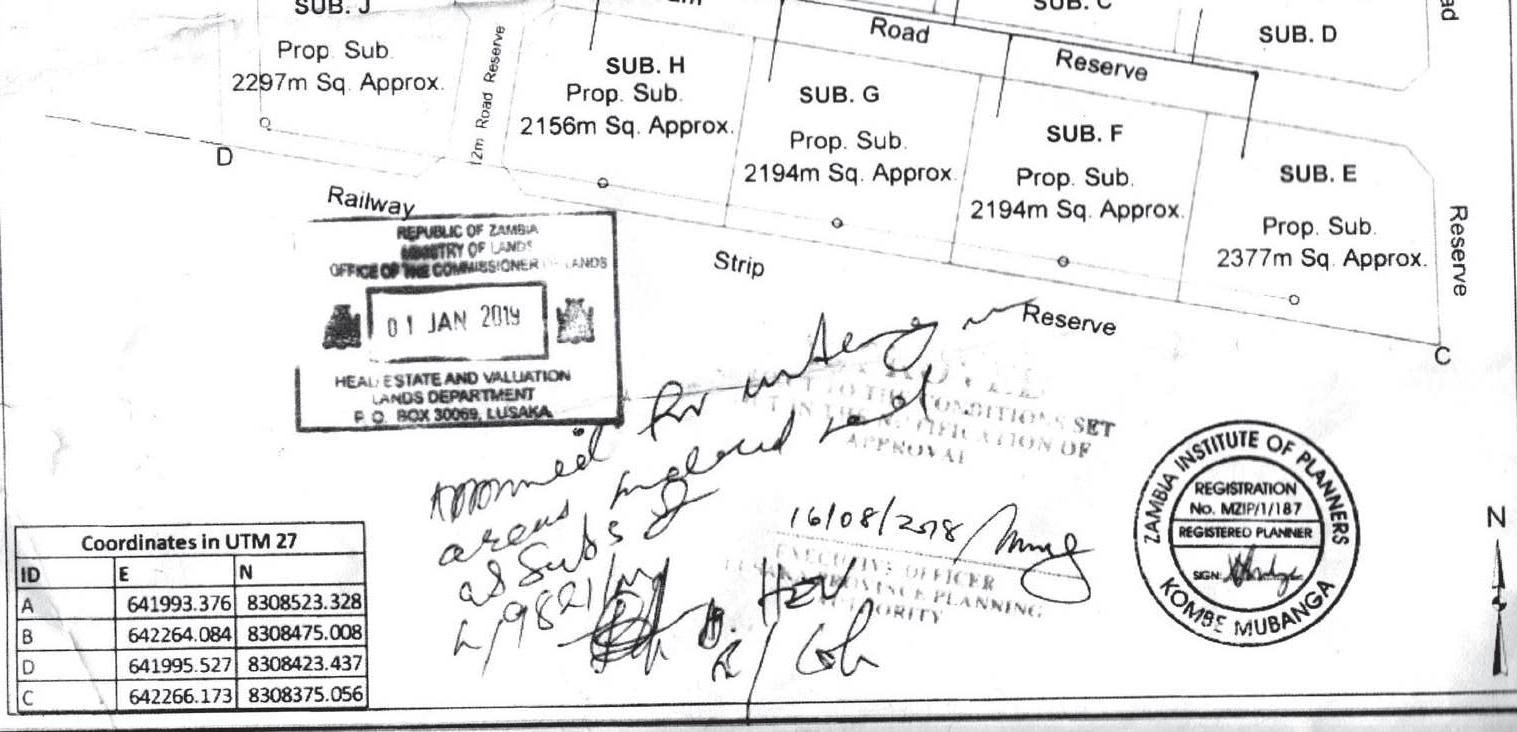 SUB. J
Prop. Sub.
2297m Sq. Approx.
12m Road Reserve
SUB. H
Prop. Sub.
2156m Sq. Approx.
SUB. G
Prop. Sub.
2194m Sq. Approx.
SUB. F
Prop. Sub.
2194m Sq. Approx.
SUB. E
Prop. Sub.
2377m Sq. Approx.
SUB. C
SUB. D
Road
Reserve
Reserve
D
C
Railway
Strip
Reserve
REPUBLIC OF ZAMBIA
MINISTRY OF LANDS
OFFICE OF THE COMMISSIONER OF LANDS
01 JAN 2019
REAL ESTATE AND VALUATION
LANDS DEPARTMENT
P. O. BOX 30069, LUSAKA
TO THE CONDITIONS SET
IN THE NOTIFICATION OF
APPROVAL
Approved for
areas
as Subs of
L/9821/M
16/08/2018
EXECUTIVE OFFICER
LUSAKA PROVINCE PLANNING
AUTHORITY
ZAMBIA INSTITUTE OF PLANNERS
REGISTRATION
No. MZIP/1/187
REGISTERED PLANNER
SIGN:
KOMBE MUBANGA
N
Coordinates in UTM 27
ID E N
A 641993.376 8308523.328
B 642264.084 8308475.008
D 641995.527 8308423.437
C 642266.173 8308375.056